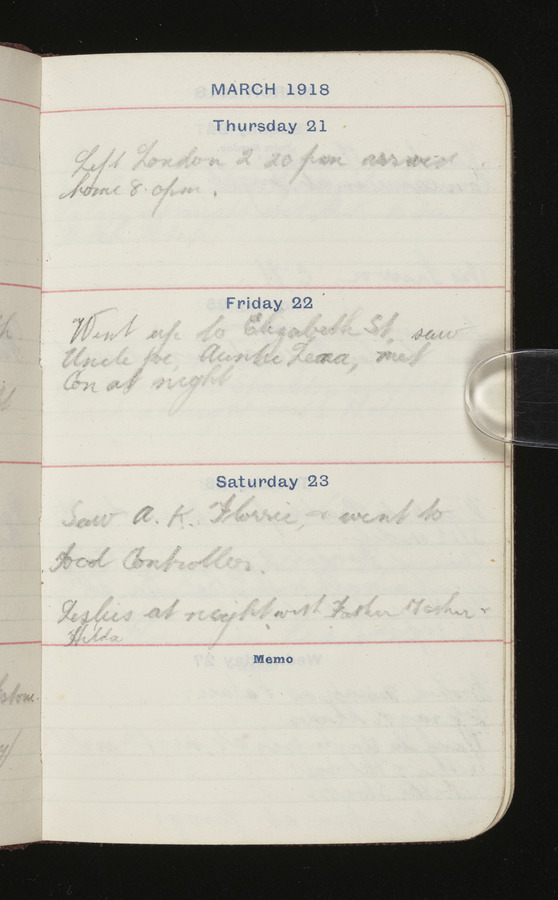 MARCH 1918
Thursday 21
Left London 2.20 pm arrived
home 8.0pm.
Friday 22
Went up to Elizabeth St, saw
Uncle Joe, Auntie Lena, met
Con at night
Saturday 23
Saw A. K. Florrie, & went to
Food Controllers.
Leslies at night with Father Mother &
Hilda
Memo